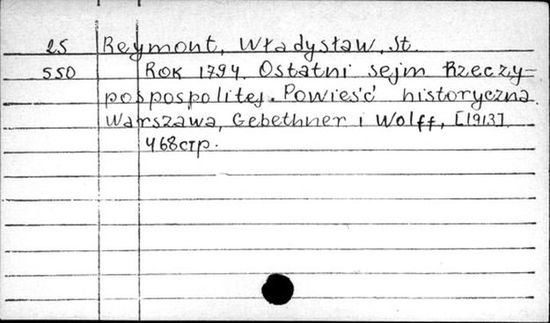 25 Reymont, Władysław, St.
550 Rok 1794. Ostatni sejm Rzeczy-
pospospolitej. Powieść historyczna
Warszawa, Gebethner i Wolff, [1913].
468стр.